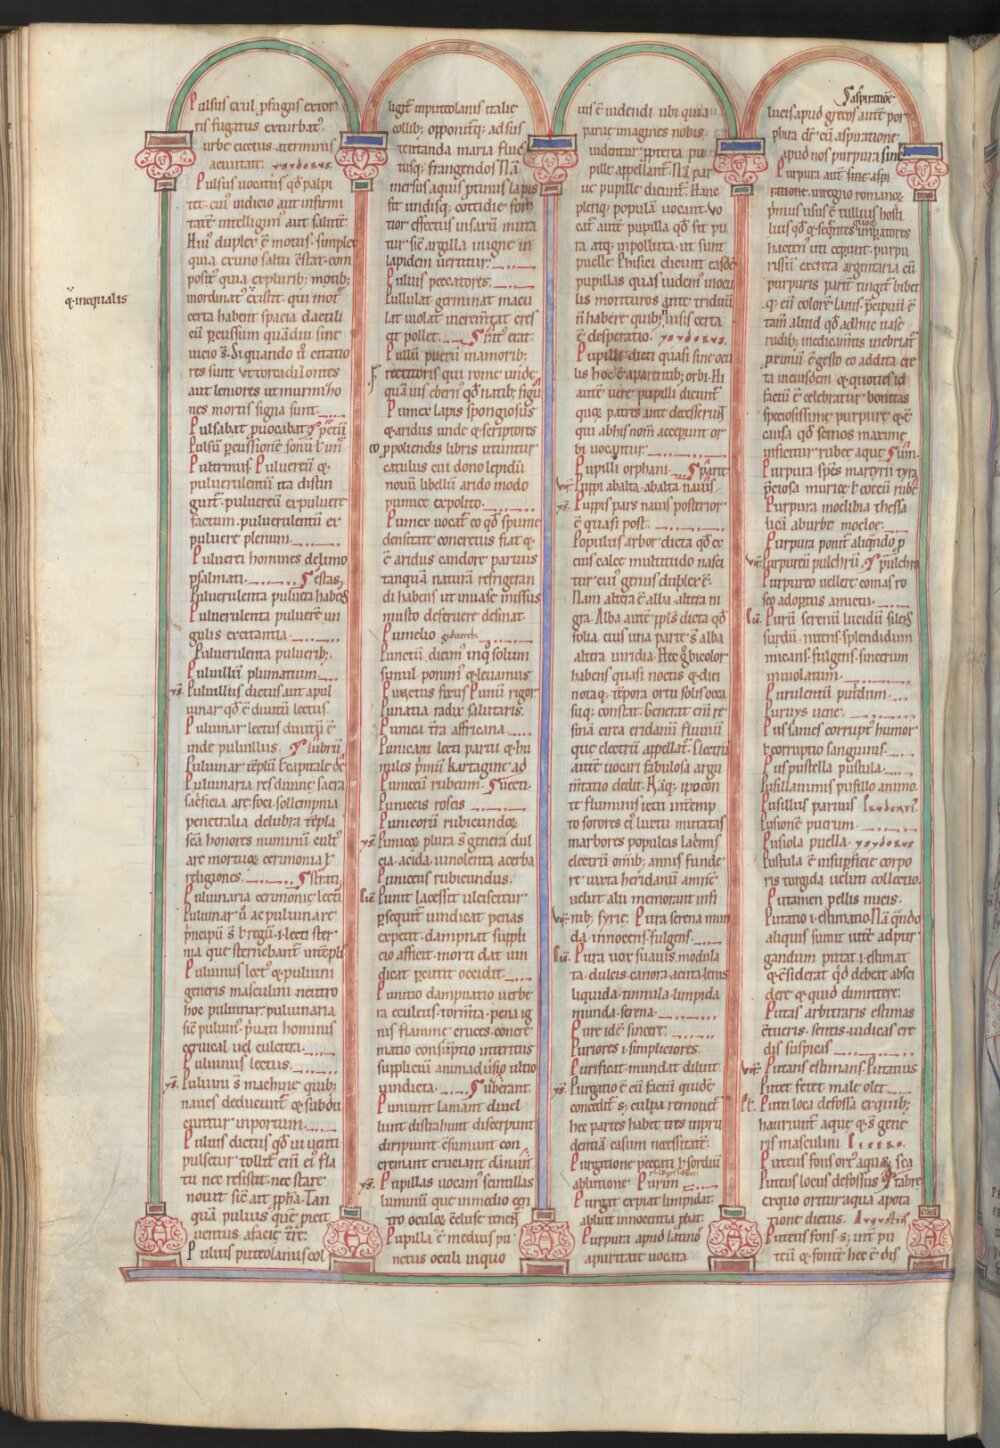 Pulsus exul ꝓfugus extor
ris fugatus exturbat᷒
urbe eiectus a terminis
acuitate. ysydorus.
Pulsus uocatus qđ palpi
tet. cui᷒ indicio aut infirmi
tatē intelligim᷒ aut salutē.
Hui᷒ duplex ē motus. simplex
quia ex uno saltu c̄stat. com
posit᷒ quia ex plurib; motib;
inordinat᷒ existit. qui mot᷒
certa habent spacia dactili
eū ꝑcussum quādiu sine
uicio s̄. Si quando ū citatio
res sunt ut
aut leniores ut murmiħo
nes mortis signa sunt
Pulsabat ꝓuocabat
Pulsū ꝑcussionē sonū
Pultrinus. Puluereū &
puluerulentū ita distin
guit᷒. puluereū ex puluere
factum. puluerulentū ex
puluere plenum.
Puluera hommes de limo
psalmati. estas;
Puluerulenta puluera habēs
Puluerulenta puluerē un
gulis excitantia.
Puluerulenta puluerib;
Puluillū plumatium
ys. Puluillus dictus a ut a pul
uinar qđ ē diuitū lectus.
Puluinar lectus diuitū ē
inde puluillus. lubrū
Puluinar tēplū
Puluinaria res diuine sacra
sac̄ficia are foci sollempnia
penetralia delubra tēpla
scā honores numinū cult᷒
are mortuoꝝ cerimonia
religiones. strati;
Puluinaria cerimonie lecti
Puluinar ū ac puluinare
p̄ncipū s̄ ł regū .i. lecti ster
nia que sternebant᷒ in tēpli
Puluinus lect᷒ & puluini
generis masculini neutro
hoc puluinar. puluinaria
sic̄ puluin᷒. p̄uati hominis
ceruical uel culcitra.
Puluinus lectus.
ys. Puluini s̄ machine quib;
naues deducunt᷒ & subdu
cuntur in portum.
Puluis dictus qđ ui uenti
pulsetur tollit᷒ eni ei᷒ fla
tu nec resistit. nec stare
nouit sic̄ ait ꝓph̄a. Tan
quā puluis quē ꝓicit
uentus a facie tre.
Puluis puteolanus col
q̄ inequalis
ligit᷒ in puteolanis italie
collib; opponit᷒q; ad sus
tentanda maria fluc
tusq; frangendos. Nā
mersus aquis ꝓtinus lapis
fit undisq; cottidie for
tior effectus in saxū muta
tur sic̄ argilla in igne in
lapidem uertitur.
Puluis peccatores.
Pullulat germinat macu
lat uiolat incremtat cres
cit pollet. rit᷒ erat.
Pullū puerū in amorib;
rectitoris qui rome unde
quā uis ebern᷒ qđ natib; figū
Pumex lapis spongiosus
& aridus unde & scriptores
co p̄ poliendis libris utuntur
catulus cui dono lepidū
nouū libellū arido modo
pumice expolito.
Pumex uocat᷒ eo qđ spume
densitate concretus fiat &
ē aridus candore paruus
tanquā naturā refrigeran
di habens ut in uase missus
musto deferuere desinat.
Pumelio
Punctū diem᷒ inq̄ solum
simul ponim᷒ & leuamus
Punctus fixus. Punū rigor
Punatia radix salutaris.
Punica tra affricana.
Punicani lecti parui & hu
miles primū kartagine ad
Puniceū rubeum. uecti.
Puniceis roseis
Puniceorū rubicundoꝝ
ys. Punicoꝝ plura s̄ genera dul
cia. acida uinolenta acerba
Puniceus rubicundus.
Punit lacessit ulciscitur
ꝑsequit᷒ uindicat penas
expetit. dampnat suppli
cio afficit. morti dat uin
dicat ꝑcutit occidit.
Punitio dampnatio uerbe
ra eculeus. tormta. pena ig
nis flamme. cruces. concre
matio consūptio interitus
supplicium animaduſio ultio
uindicta. uberant.
Puniunt laniant diuel
lunt distrahunt discerpunt
diripunt c̄sumunt con
cremant cruciant dānant.
ys. Pupillas uocam᷒ scintillas
luminū que in medio cen
tro oculoꝝ c̄cluse tenēt᷒
Pupilla ē medius pu
nctus oculi in quo
uis ē uidendi ubi quia
parue imagines nobis
uidentur ꝓpterea pu
pille appellant᷒. Nā par
ue pupille dicunt᷒. Hanc
pleriq; populā uocant. Vo
cat᷒ autē pupilla qđ sit pu
ra atq; inpolluta ut sunt
puelle. Phisici dicunt easdē
pupillas quas uidem᷒ in ocu
lis morituros ante triduū
ñ habere quib; ñ uisis certa
ē desperatio. ysydorus.
Pupille dicti quasi sine ocu
lis hoc ē a parentib; orbi. Hi
autē uere pupilli dicunt᷒
quoꝝ patres ante decesserūt
qui ab his nom acceperunt or
bi uocantur.
Pupilli orphani.
Puppi ab alta. ab alta nauis.
ys. Puppis pars nauis posterior
ē quasi post.
Populus arbor dicta qđ ex
eius calce multitudo nasci
tur cui᷒ genus duplex ē.
Nam altera ē alba altera ni
gra. Alba autē ppls̄ dicta qđ
folia eius una parte s̄ alba
altera uiridia. Hec g̊ bicolor
habens quasi noctis & diei
notaq; tēpora ortu solis occa
suq; constat. Generat eni re
sinā circa eridanū fluuiū
que electrū appellat᷒. Electrū
autē uocari fabulosa argu
mtatio dedit. Naq; ipo con
te fluminis ictu intemp
to sorores ei᷒ luctu mutatas
marbores populeas lacrimis
electrū omib; annis funde
re iuxta heridanū amnē
uelut alii memorant insi
nib; syrie. Pura serena mun
da. innocens. fulgens.
Pura uox suauis. modula
ta. dulcis. canora. acuta. lenis
liquida. tinnula. limpida
munda. serena.
Pure idē sincere.
Puriores .i. simpliciores.
Purificat mundat diluit.
ys. Purgatio ē cū factū quidē
conceditᷓ s; culpa remouet᷒
hec partes habet tres inpru
dentiā casum necessitatē.
Purgatione peccati ł sordiū
ablutione. Purim
Purgat expiat limpidat
abluit innocentia ꝓbat
Purpura apud latino
a puritate uocata
aspiratiōe
lucis. apud grecos autē por
phira dr̄ cū aspiratione
apud nos purpura sine
Purpura autē sine aspi
ratione. in regno romanoꝝ
prim᷒ usus ē tullius hosti
lius qđ & seqn̄tes quoq; imperatores
hactenus uti ceperunt. purpu
rissū ex creta argentaria cū
purpuris parit᷒ tingit᷒ bibit
q; eū colorē lanis. Precipuū ē
tam aliud qđ adhuc uase
rudib; medicamtis inebriat᷒
ꝓximū ē gesto eo addita cre
ta in eiusdem & quotiens id
factū ē celebratur bonitas
speciosissime purpure & ē
causa qđ senos maxime
inficitur rubee aque
Purpura sp̄es martyrii tyra
preciosa murice ł coccū rubē
Purpura moelibia thessa
lica ab urbe moeloe.
Purpura ponit᷒ aliqn̄do ꝑ
Purpureū pulchrū. ꝓ pulchro
Purpureo uellere comas ro
seo adoptus amicui.
Purū serenū lucidū siderū
surdū. nitens. splendidum
micans. fulgens. sincerum
inuiolatum.
Purulentū putidum.
Puruys uene.
Pus sanies corrupt᷒ humor
ł corruptio sanguinis.
Pus pustella pustula.
Pusillanimis pusillo animo.
Pusillus paruus
Pusionē puerum
Pusiola puella. ysydorus
Pustula ē in sup̄ficie corpo
ris turgida ueluti collectio.
Putamen pellis nucis.
Putatio .i. estimatio. Nā qn̄do
aliquis sumit uitē ad pur
gandum putat .i. estimat
& c̄siderat qđ debeat absci
dere & quid dimittere.
Putas arbitraris estimas
c̄iceris. sentis. iudicas cre
dis suspicis
Putans estimans. Putatius
Putet fetet male olet
Putei loca defossa ex quib;
hauriunt᷒ aque & s̄ gene
ris masculini
Puteus fons ore aquaꝝ sca
Puteus locus defossus
ex quo oritur aqua a pota
tione dictus. Augustin᷒
Puteus fons. s; uit pu
teū & fontē hec ē dis